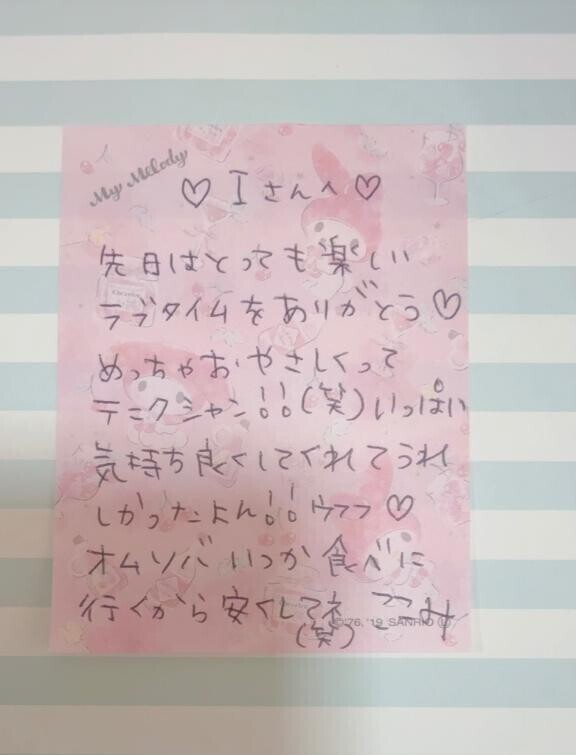 My Melody
♡ Iさんへ ♡
先日はとっても楽しい
ラブタイムをありがとう♡
めっちゃおやさしくって
テニクシャン!!(笑)いっぱい
気持ち良くしてくれてうれ
しかったよん!!ウフフ♡
オムソバいつか食べに
行くから安くしてネ ここみ
(笑)
©'76, '19 SANRIO Ⓛ